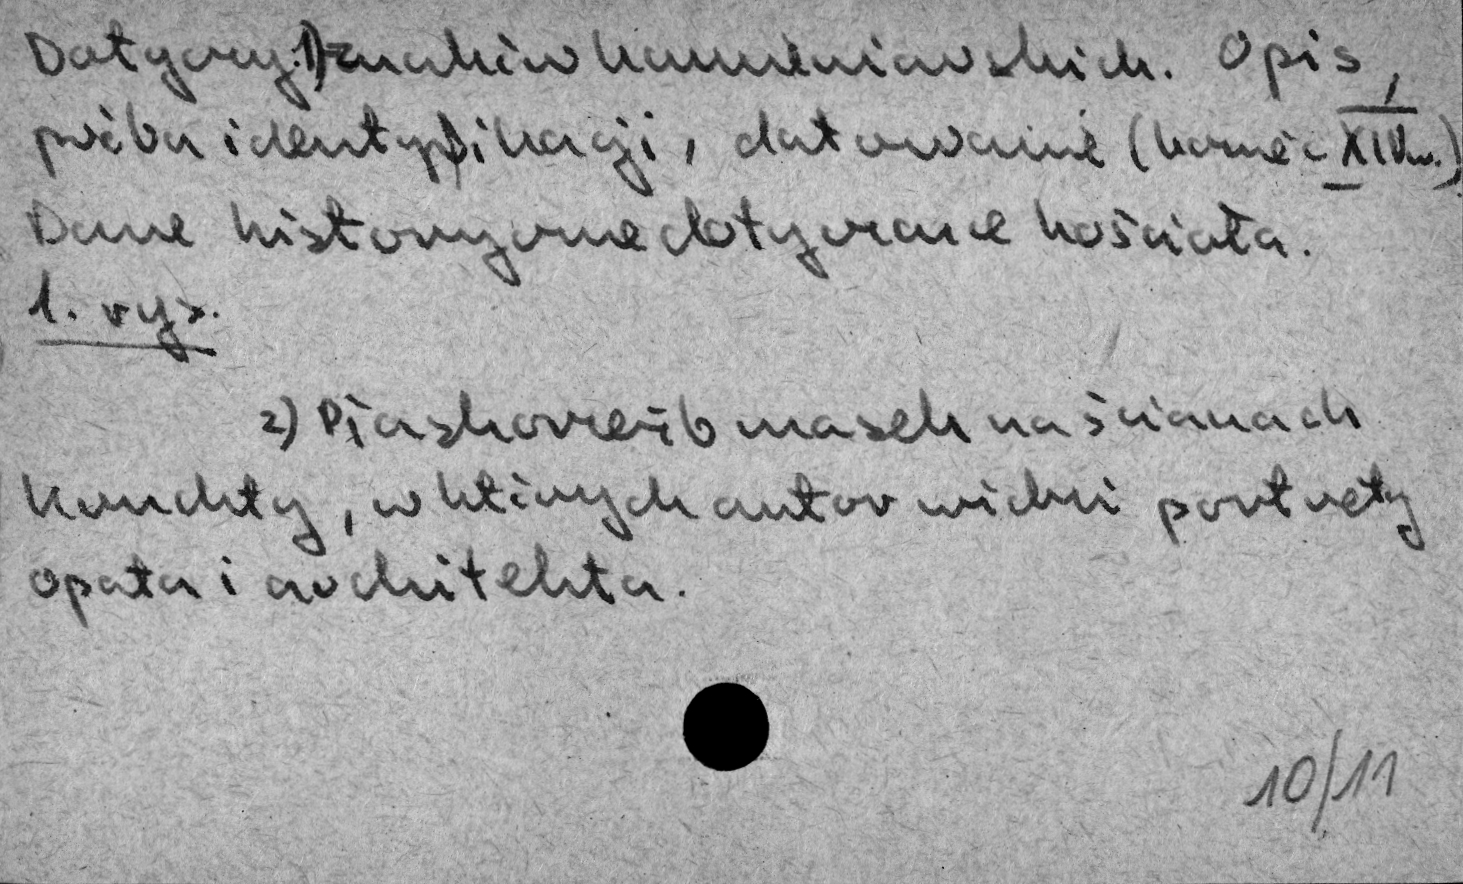 Dotyczy 1) znaków kamieniarskich. Opis,
próba identyfikacji, datowanie (koniec XIV w.)
Dane historyczne dotyczące kościoła.
1. ryc.
2) Piaskowcowych masek na ścianach
Kruchty, w których autor widzi portrety
opata i architekta.
10/11